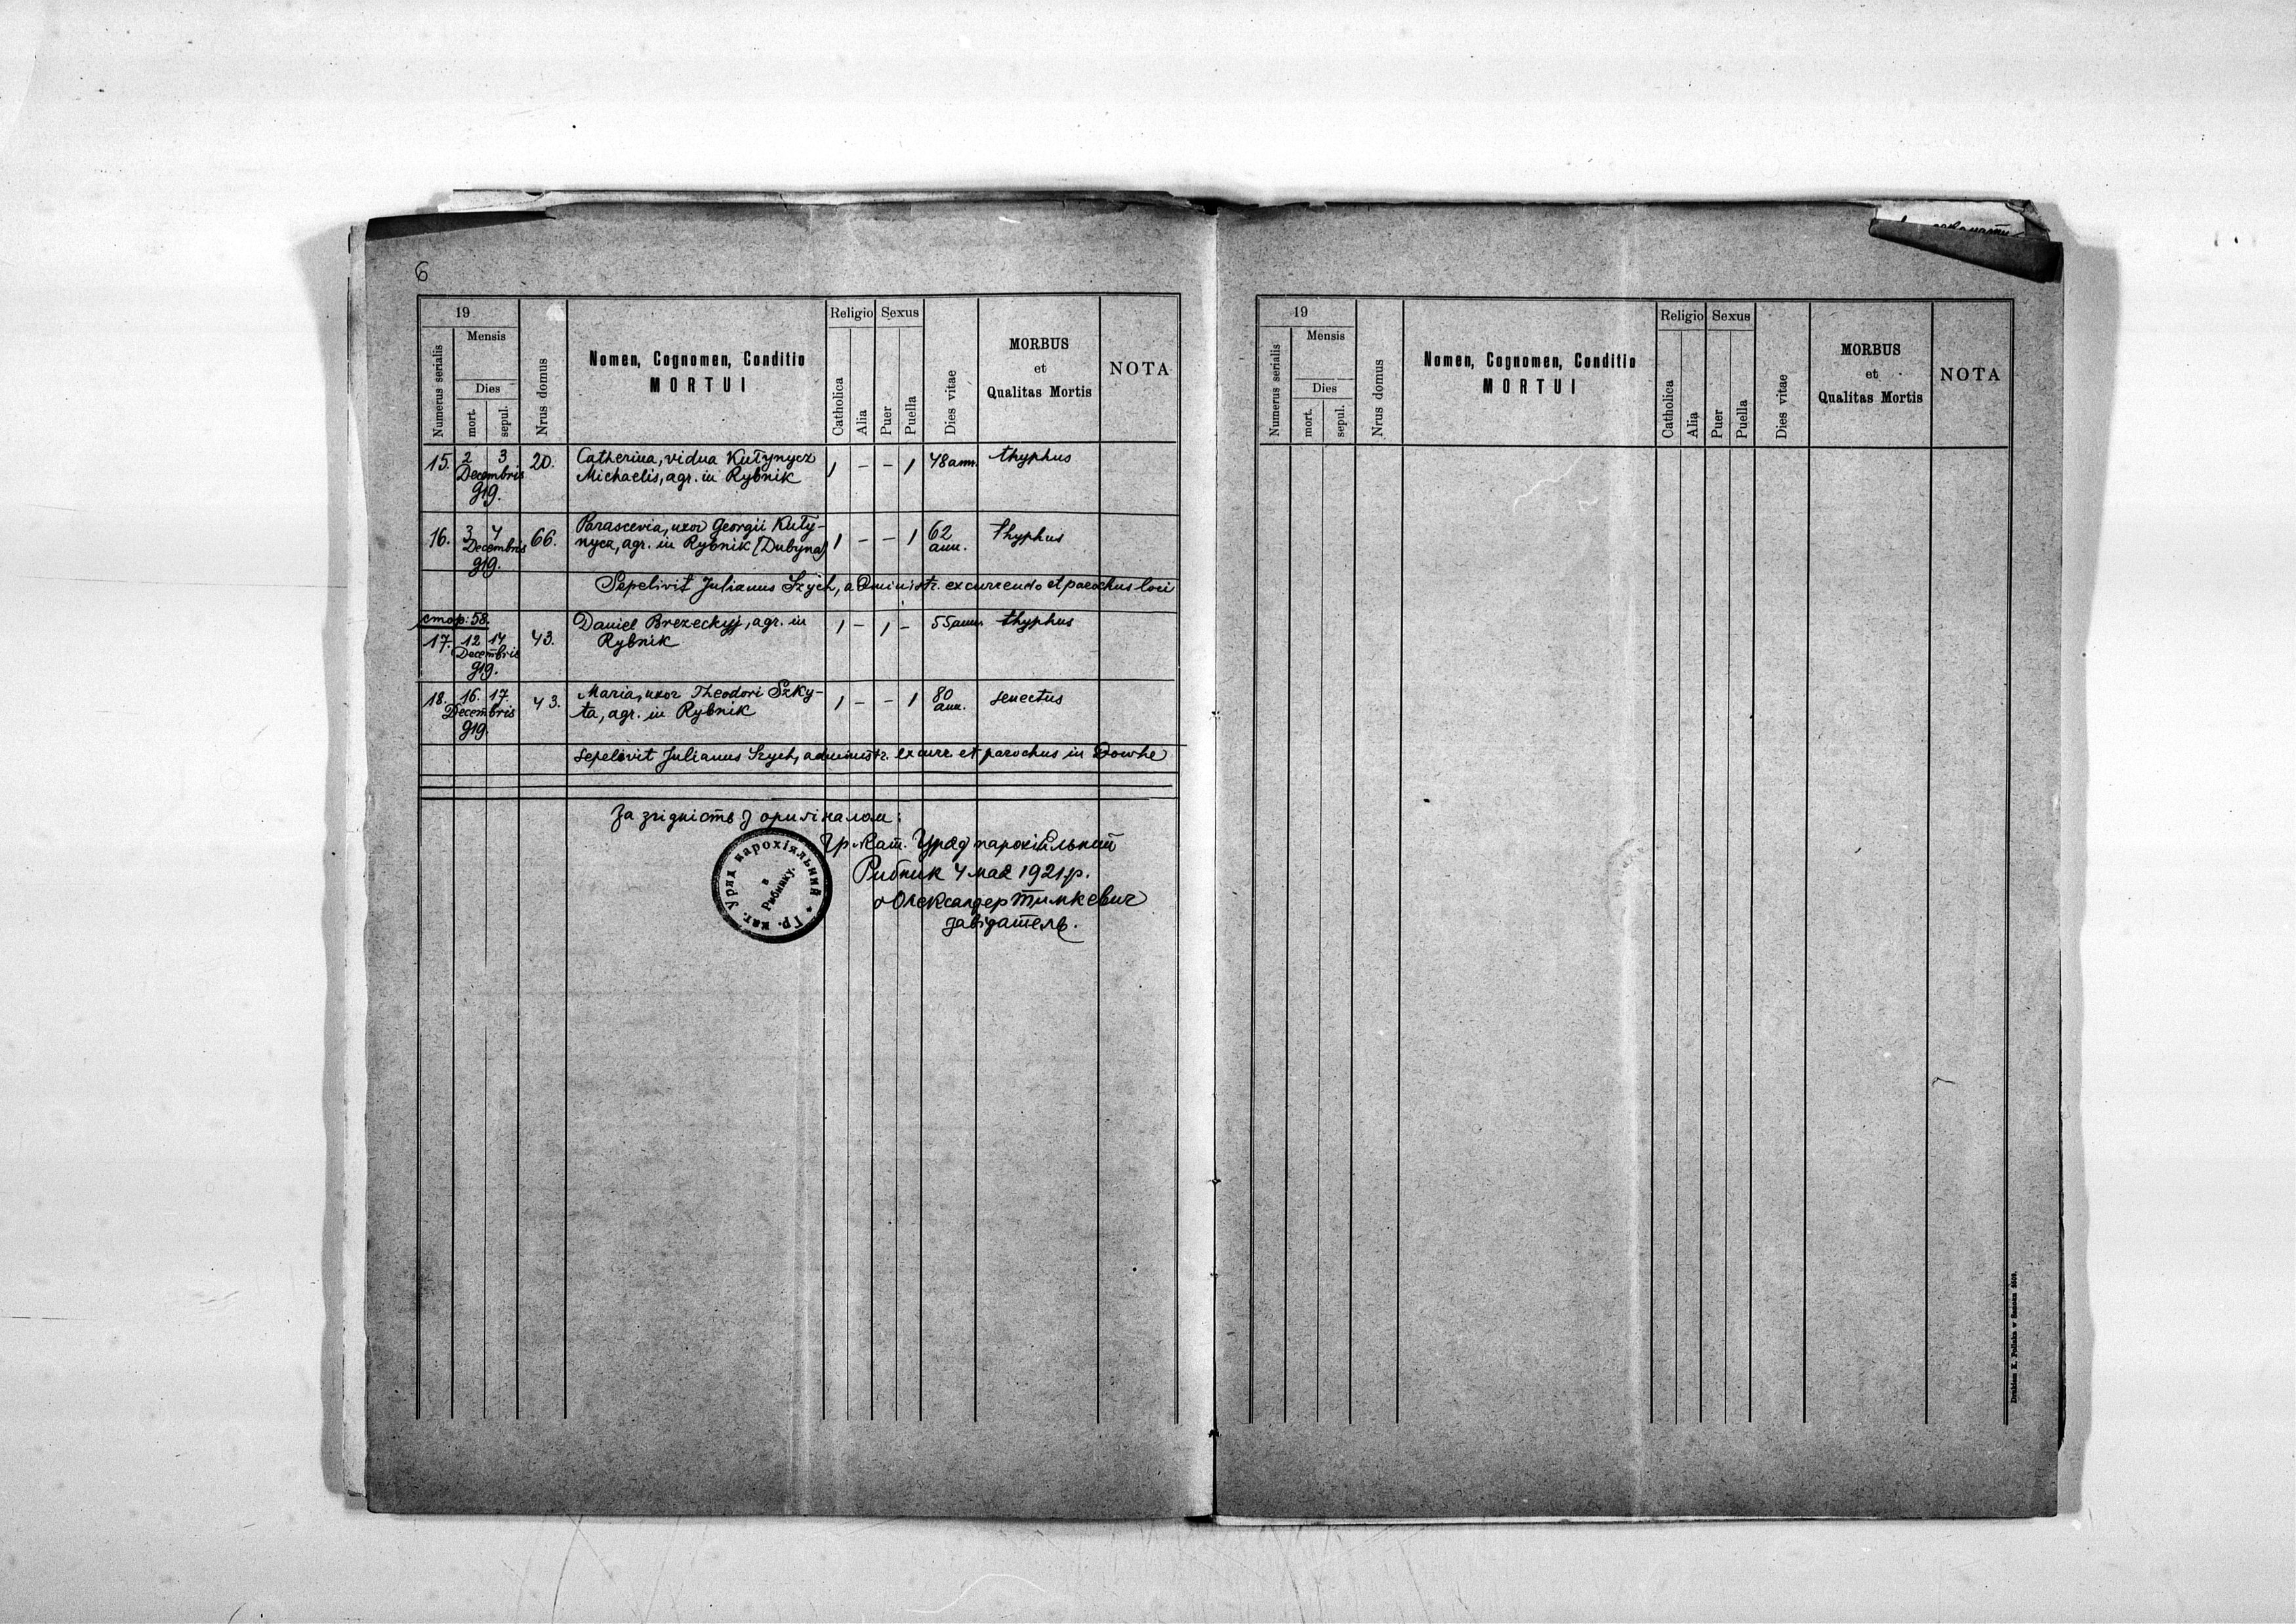 6
19
Mensis
Dies
Numerus serialis
mort.
sepul.
Nrus domus
Nomen, Cognomen, Conditio
MORTUI
Religio
Catholica
Alia
Sexus
Puer
Puella
Dies vitae
MORBUS
et
Qualitas Mortis
NOTA
15. 2 3 20. Catherina, vidua Kutynycz 1 – – 1 48 ann. thyphus
Decembris Michaelis, agr. in Rybnik
919.
16. 3 4 66. Parascevia, uxor Georgii Kuty- 1 – – 1 62 thyphus
Decembris nycz, agr. in Rybnik (Dubyna) ann.
919.
Sepelivit Julianus Szych, administr. excurrendo et parochus loci
стор: 58.
17. 12 14 43. Daniel Brezeckyj, agr. in 1 – 1 – 55 ann. thyphus
Decembris Rybnik
919.
18. 16. 17. 43. Maria, uxor Theodori Szky- 1 – – 1 80 senectus
Decembris ta, agr. in Rybnik ann.
919.
Sepelivit Julianus Szych, administr. excurr. et parochus in Dowhe
За згідність з оригіналом:
Гр. кат. Уряд парохіяльний
Рибник 4 мая 1921 р.
о Олександер Тимкевич
завідатель.
Гр. кат. Уряд парохіяльний
в
Рибнику.
19
Mensis
Dies
Numerus serialis
mort.
sepul.
Nrus domus
Nomen, Cognomen, Conditio
MORTUI
Religio
Catholica
Alia
Sexus
Puer
Puella
Dies vitae
MORBUS
et
Qualitas Mortis
NOTA
Drukiem K. Pollaka w Sanoku